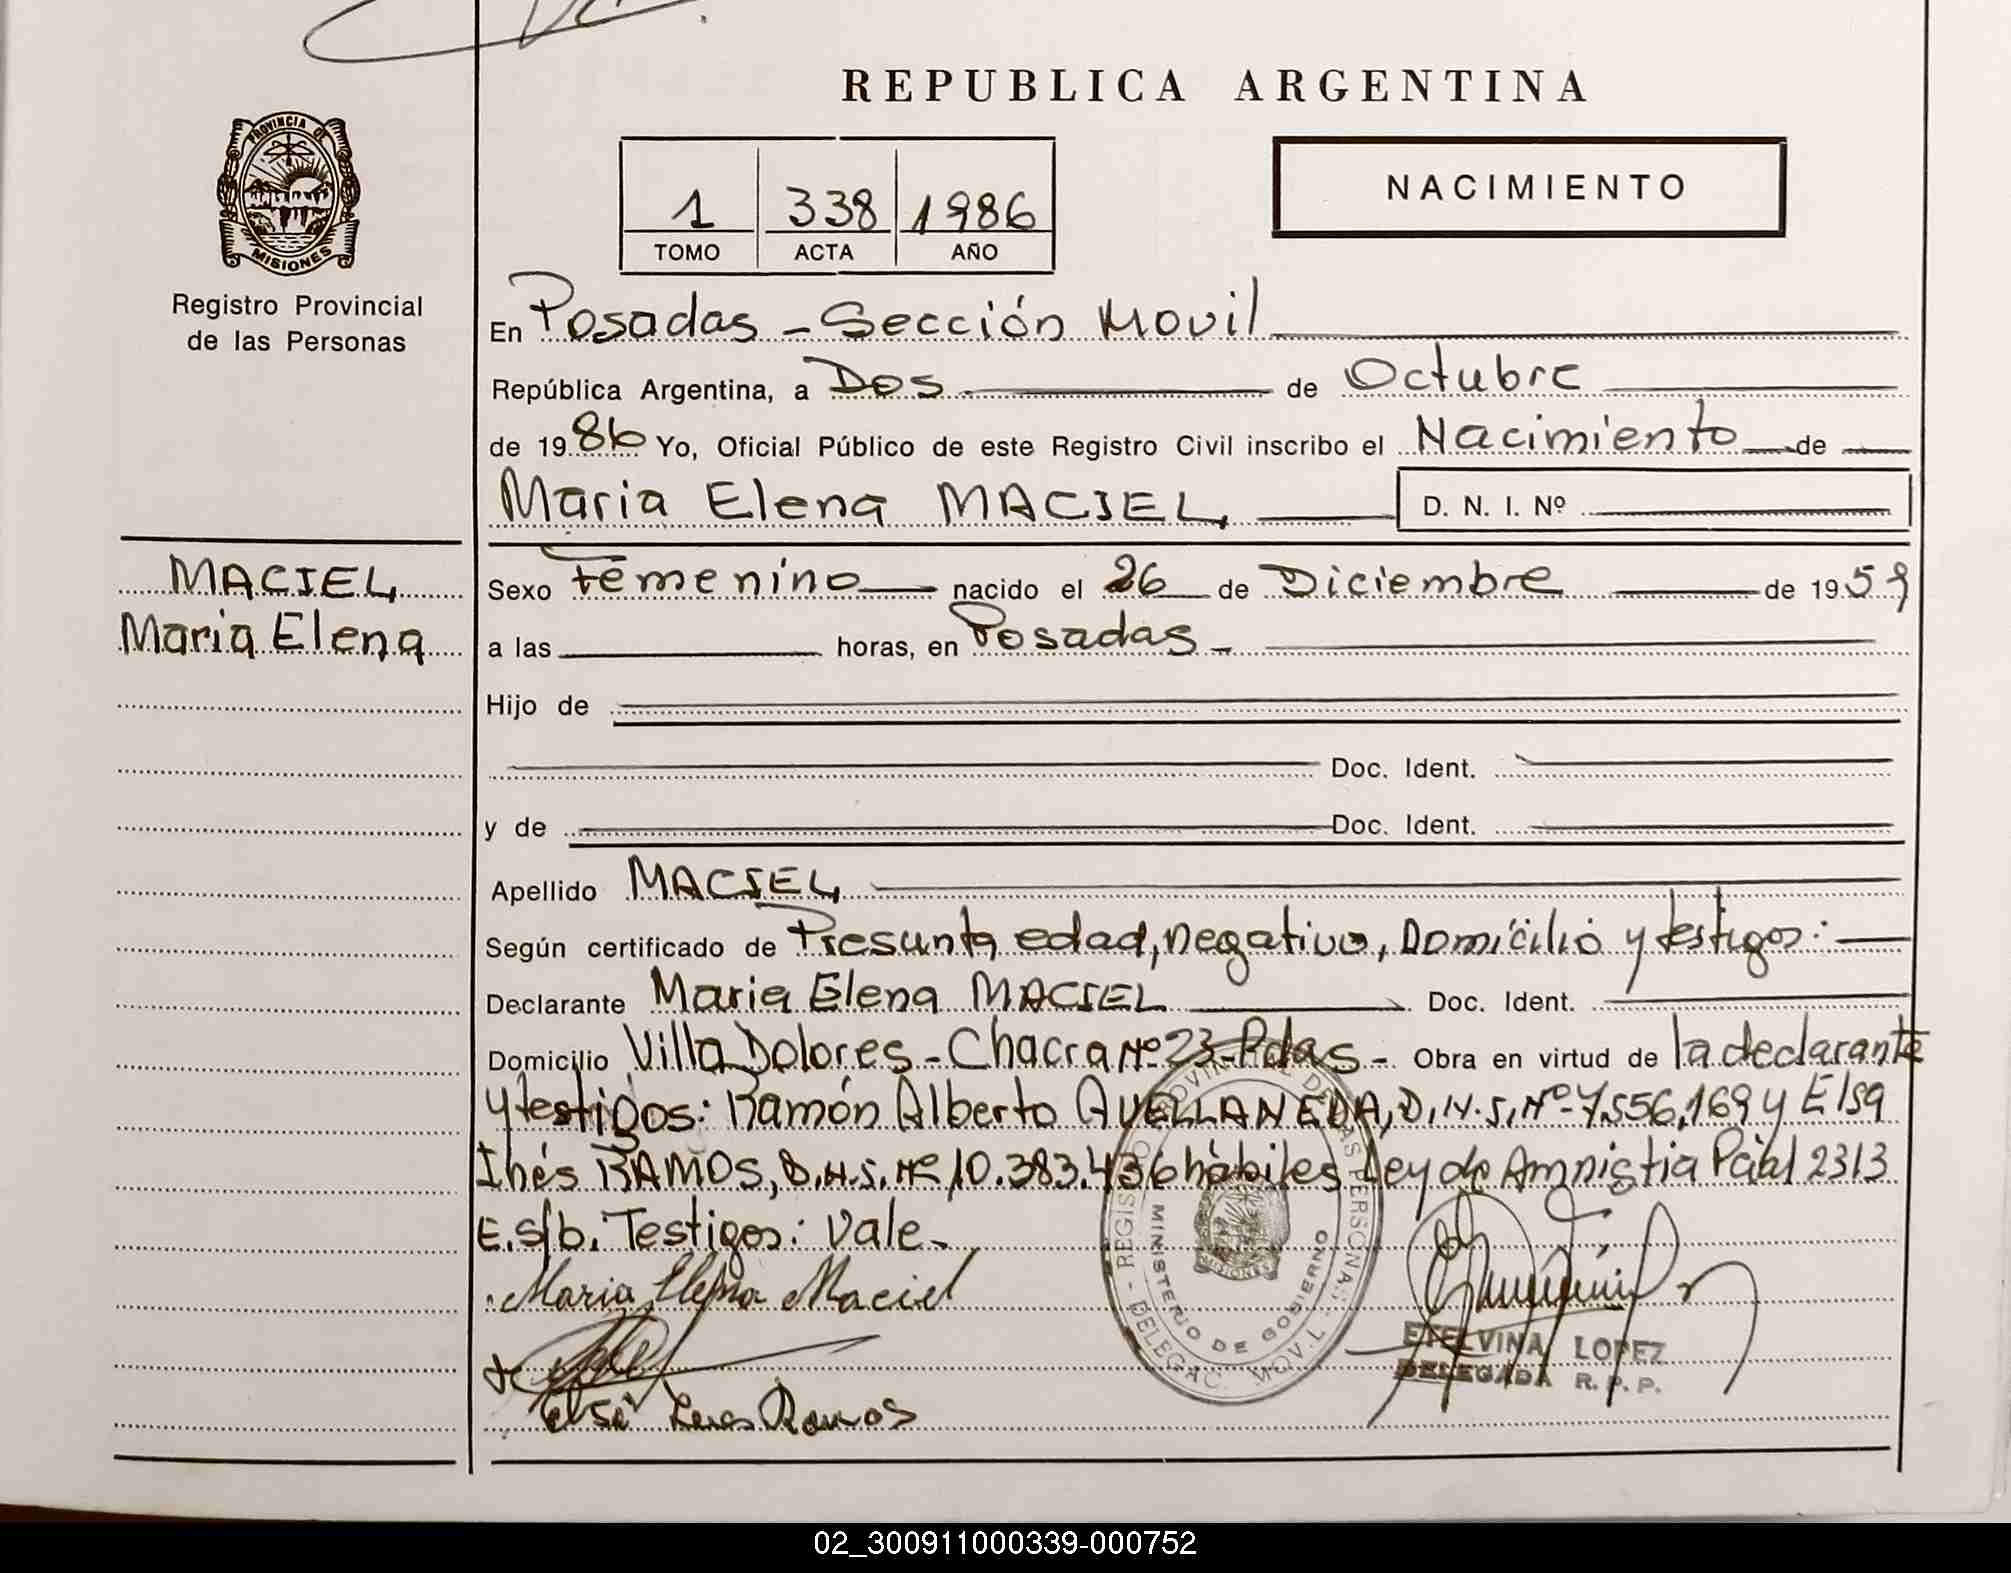 REPUBLICA ARGENTINA
PROVINCIA DE
MISIONES
Registro Provincial
de las Personas
1 338 1986
TOMO ACTA AÑO
NACIMIENTO
En Posadas - Sección Movil
República Argentina, a Dos de Octubre
de 19 86 Yo, Oficial Público de este Registro Civil inscribo el Nacimiento de
Maria Elena MACIEL D. N. I. Nº
MACIEL
Maria Elena
Sexo Femenino nacido el 26 de Diciembre de 1959
a las horas, en Posadas -
Hijo de
Doc. Ident.
y de Doc. Ident.
Apellido MACIEL
Según certificado de Presunta edad, negativo, Domicilio y testigos:
Declarante Maria Elena MACIEL Doc. Ident.
Domicilio Villa Dolores - Chacra Nº 23 - Pdas - Obra en virtud de la declarante
y testigos: Ramón Alberto AVELLANEDA, D.N.I. Nº 7.556.169 y Elsa
Inés RAMOS, D.N.I. Nº 10.383.436 hábiles Ley de Amnistia Pcial 2313
E.s/b. Testigos: Vale -
Maria Elena Maciel
Elsa Ines Ramos
REGISTRO PROVINCIAL DE LAS PERSONAS - DELEGAC. MOVIL -
MINISTERIO DE GOBIERNO
MISIONES
ETELVINA LOPEZ
DELEGADA R. P. P.
02_300911000339-000752